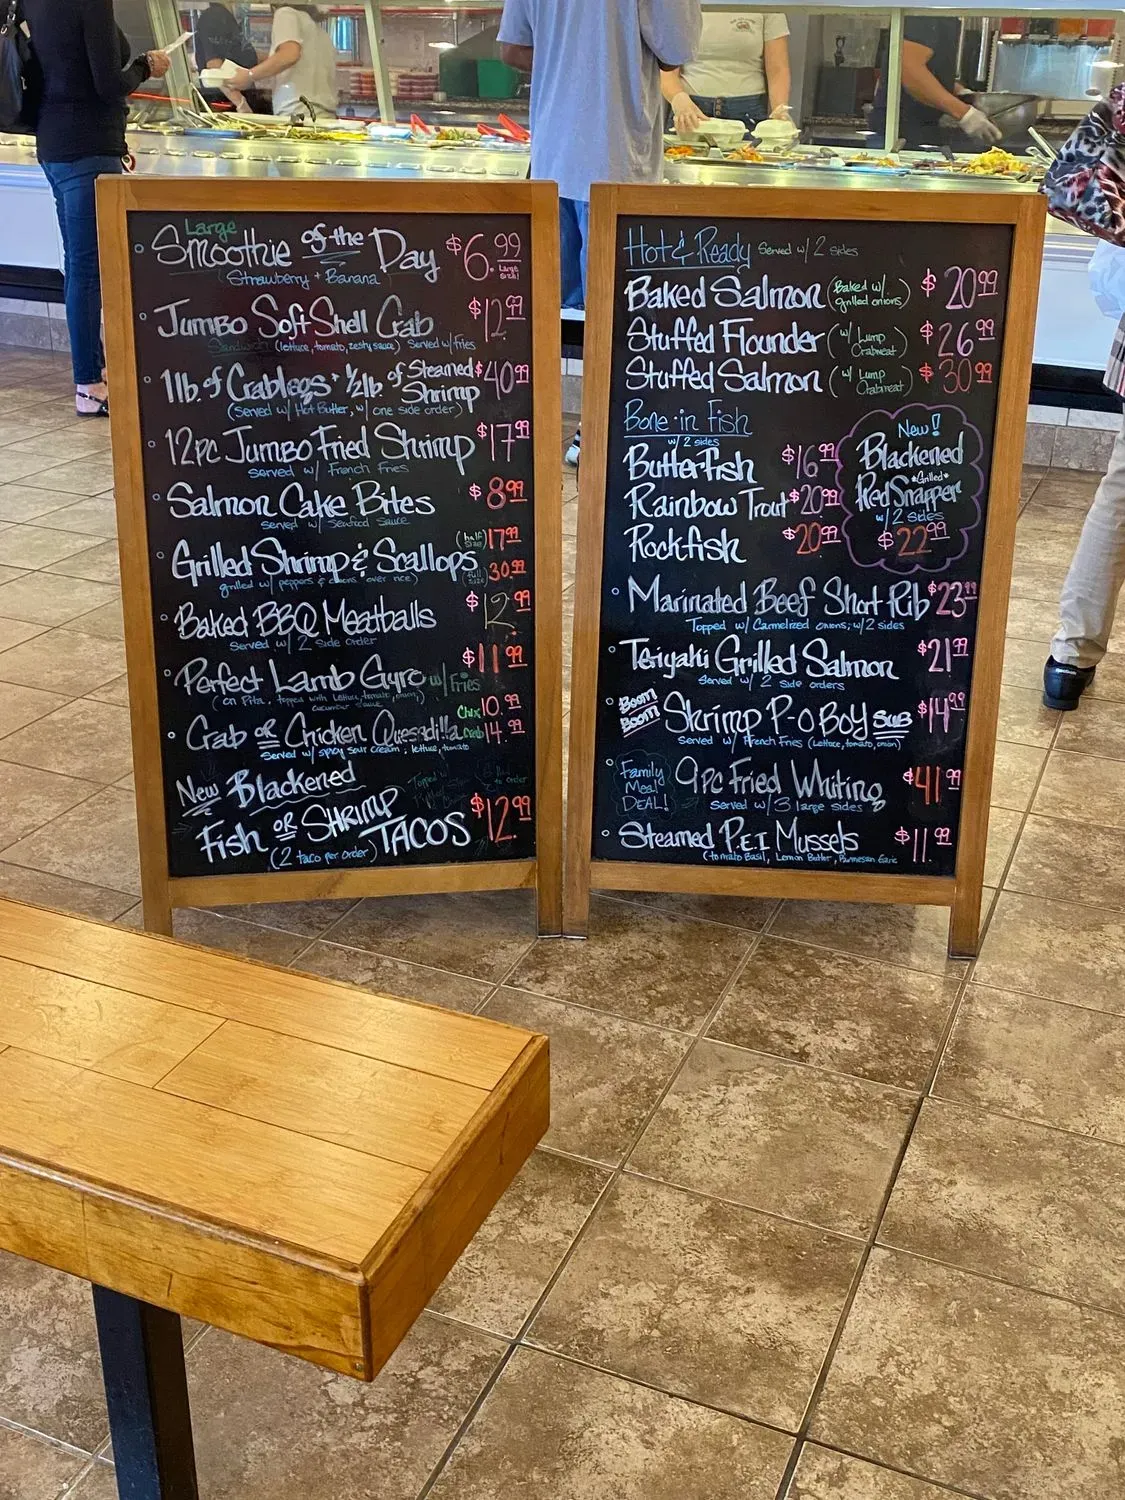 Large
Smoothie of the Day $6.99
Strawberry + Banana Large Size!
Jumbo Soft Shell Crab $12.99
Sandwich (lettuce, tomato, zesty sauce) Served w/ fries
1lb. of Crablegs + 1/2lb. of Steamed Shrimp $40.99
(Served w/ Hot Butter, w/ one side order)
12pc Jumbo Fried Shrimp $17.99
Served w/ French Fries
Salmon Cake Bites $8.99
Served w/ Seafood Sauce
Grilled Shrimp & Scallops (half size) 17.99
grilled w/ peppers & onions over rice (full size) 30.99
Baked BBQ Meatballs $12.99
Served w/ 2 Side Order
Perfect Lamb Gyro w/ Fries $11.99
(on Pita, topped with Lettuce, tomato, onion,
cucumber sauce
Crab or Chicken Quesadilla Chix 10.99
Crab 14.99
Served w/ spicy sour cream, lettuce, tomato
New Blackened
Fish or Shrimp Tacos $12.99
(2 taco per order)
Hot & Ready Served w/ 2 sides
Baked Salmon (Baked w/ grilled onions) $20.99
Stuffed Flounder (w/ Lump Crabmeat) $26.99
Stuffed Salmon (w/ Lump Crabmeat) $30.99
Bone-in Fish
w/ 2 sides
Butterfish $16.99
Rainbow Trout $20.99
Rockfish $20.99
New!
Blackened
*Grilled*
Red Snapper
w/ 2 sides
$22.99
Marinated Beef Short Rib $23.99
Topped w/ Carmelized onions, w/ 2 sides
Teriyaki Grilled Salmon $21.99
Served w/ 2 side orders
Boom Boom Shrimp P-O Boy Sub $14.99
Served w/ French Fries (Lettuce, tomato, onion)
Family Meal DEAL! 9pc Fried Whiting $41.99
Served w/ 3 large sides
Steamed P.E.I Mussels $11.99
(tomato Basil, Lemon Butter, Parmesan Garlic